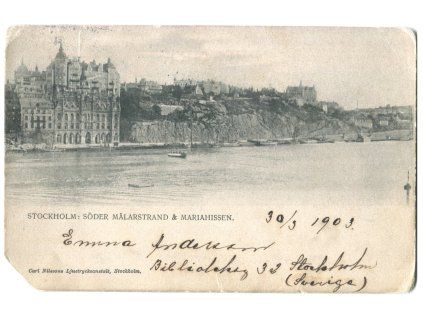 STOCKHOLM: SÖDER MÄLARSTRAND & MARIAHISSEN.
30/3 1903.
Emma Andersson
32 Stockholm
(Sverige)
Carl Nilssons Ljustrycksanstalt, Stockholm.